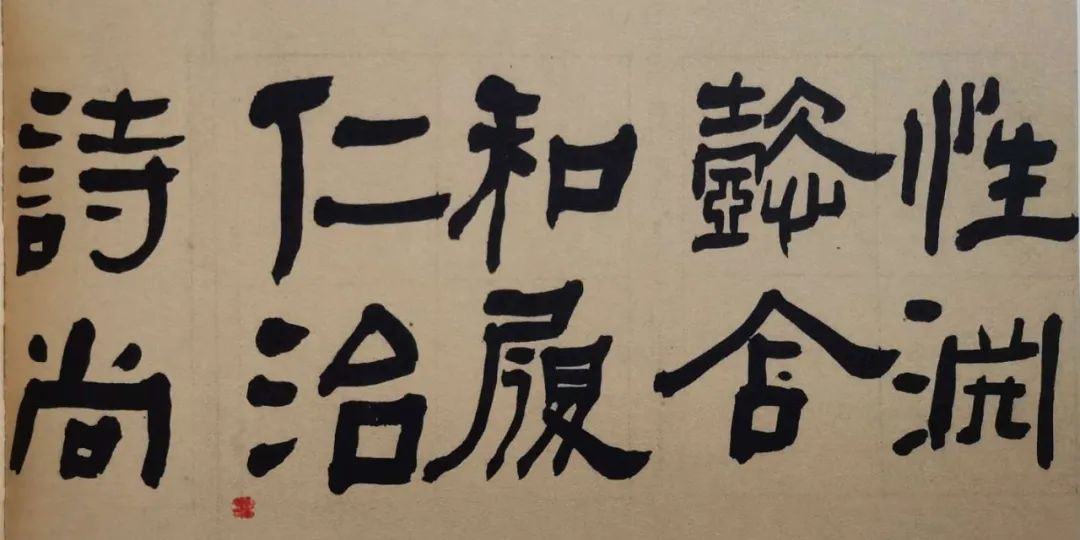 性淵
懿含
和履
仁治
詩尚